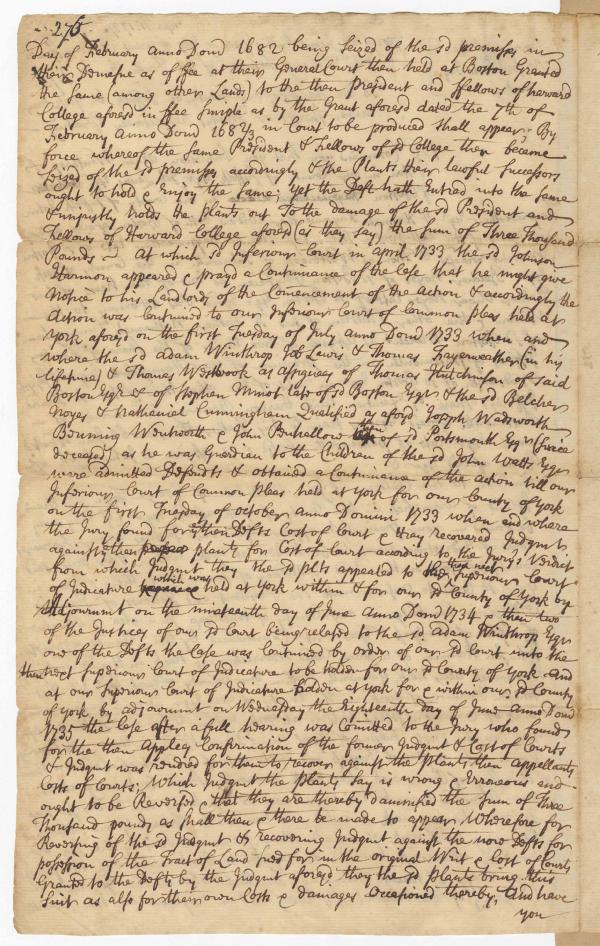 276
Day of February Anno Domi 1682 being Seized of the sd premises in
their Demesne as of ffee at their General Court then held at Boston Granted
the Same (among other Lands) to the then President and ffellows of harward
College aforesd in ffee Simple as by the Grant aforesd dated the 7th of
February Anno Domi 1682/3 in Court to be produced Shall appear; By
force whereof the Same President & Fellows of sd College then became
Seized of the sd premises accordingly & the Plants their lawful Successors
ought to hold & Enjoy the Same; yet the Deft hath Entred into the Same
& unjustly holds the plants out To the damage of the sd President and
Fellows of Harward College aforesd (as they say) the Sum of Three Thousand
Pounds At which sd Inferiour Court in april 1733 the sd Johnson
Harmon appeared & prayd a Continuance of the Case that he might give
Notice to his Landlords of the Comencement of the Action & accordingly the
Action was Continued to our Inferiour Court of Common pleas held at
York aforesd on the first Tuesday of July anno Domi 1733 when and
where the sd Adam Winthrop Job Lewis & Thomas Fayerweather (in his
lifetime) & Thomas Westbrook as Assignees of Thomas Hutchinson of said
Boston Esqr & of Stephen Minot late of sd Boston Esqr & the sd Belcher
Noyes & Nathaniel Cunningham Qualified as aforesd Joseph Wadsworth
Benning Wentworth & John Penhallow of sd Portsmouth Esqr (Since
deceased) as he was Guardian to the Children of the sd John Watts Esqr
were admitted Defendts & obtained a Continuance of the action till our
Inferiour Court of Common pleas held at York for our County of York
on the first Tuesday of october Anno Domini 1733 when and where
the Jury found for the then Defts Cost of Court & they recovered Judgmt
against the then plants for Cost of Court according to the Jury's Verdict
from which Judgmt they the sd plts appealed to the then next Superiour Court
of Judicature which was held at York within & for our sd County of York by
Adjournmt on the nineteenth day of June Anno Domi 1734 & then two
of the Justices of our sd Court being related to the sd Adam Winthrop Esqr
one of the Defts the Case was Continued by order of our sd Court unto the
then next Superiour Court of Judicature to be holden for our sd County of York And
at our Superiour Court of Judicature holden at York for & within our sd County
of York by adjournmt on Wednesday the Eighteenth day of June Anno Domi
1735 the Case after a full hearing was Comitted to the Jury who found
for the then Appellees Confirmation of the former Judgmt & Cost of Courts
& Judgmt was rendred for them to recover against the Plants then appellants
Costs of Courts; Which Judgmt the plants Say is wrong & Erroneous and
ought to be Reversed & that they are thereby damnified the Sum of Three
Thousand pounds as Shall then & there be made to appear Wherefore for
Reversing of the sd Judgmt & recovering Judgmt against the now Defts for
possession of the Tract of Land sued for in the original Writ & Cost of Courts
Granted to the Defts by the Judgmt aforesd they the sd plants bring this
Suit as also for their own Costs & damages Occasioned thereby, And have
you